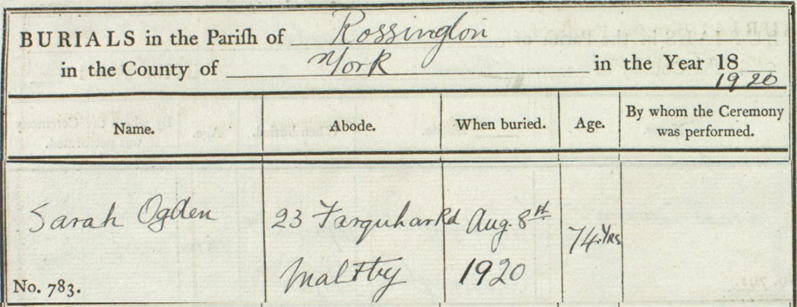 BURIALS in the Parish of Rossington
in the County of York in the Year 18
1920
Name. Abode. When buried. Age. By whom the Ceremony was performed.
Sarah Ogden 23 Farquhar Rd Aug. 8th 74 Yrs
Maltby 1920
No. 783.